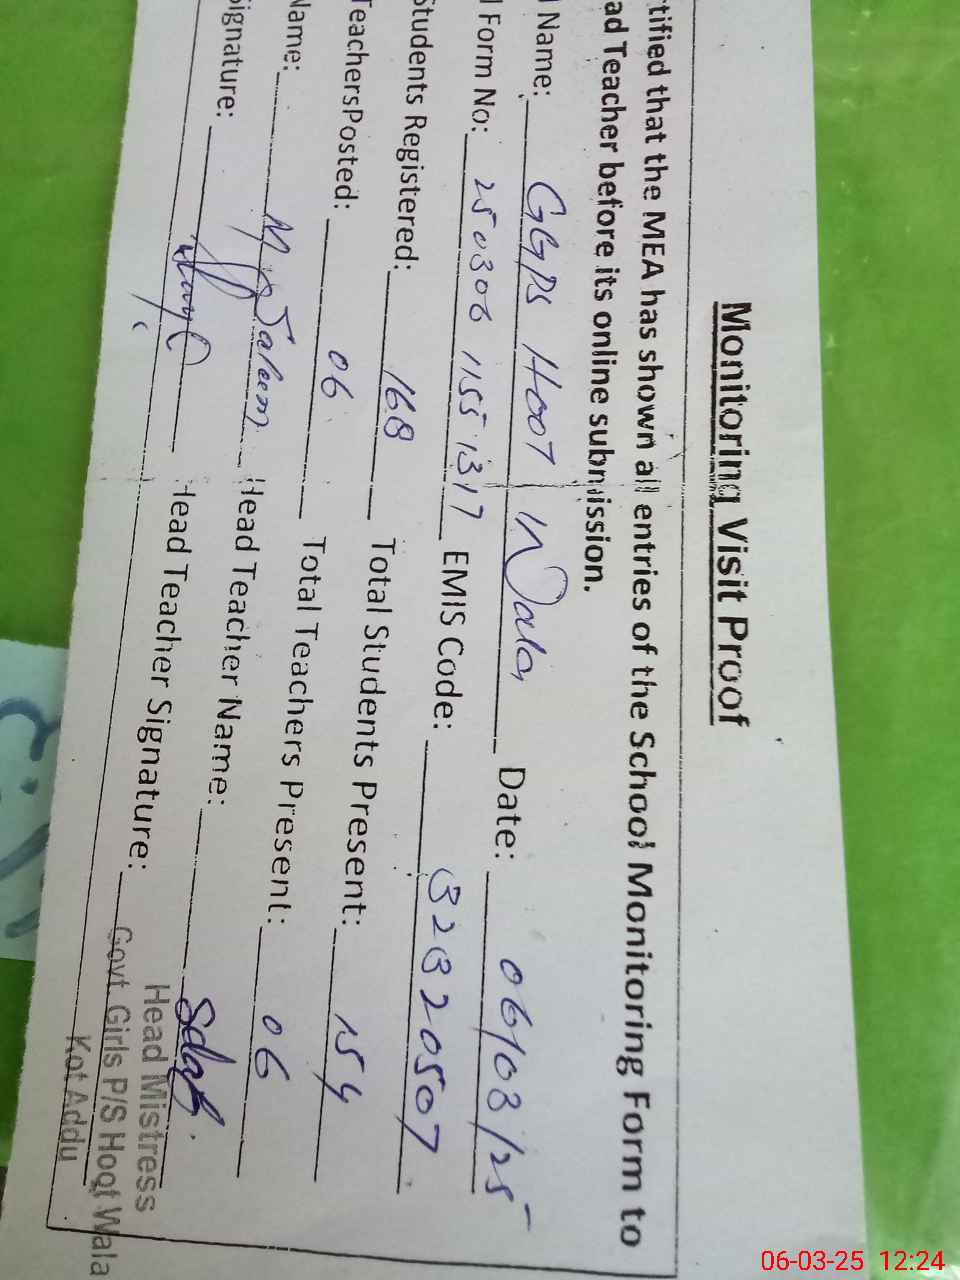 Monitoring Visit Proof
tified that the MEA has shown all entries of the School Monitoring Form to
ad Teacher before its online submission.
l Name: GGPS HOOT Wala Date: 06/03/25
l Form No: 250306 1155 1317 EMIS Code: 32320507
Students Registered: 168 Total Students Present: 154
TeachersPosted: 06 Total Teachers Present: 06
Name: M Saleem Head Teacher Name:
Signature: Head Teacher Signature:
Head Mistress
Govt. Girls P/S Hoot Wala
Kot Addu
06-03-25 12:24